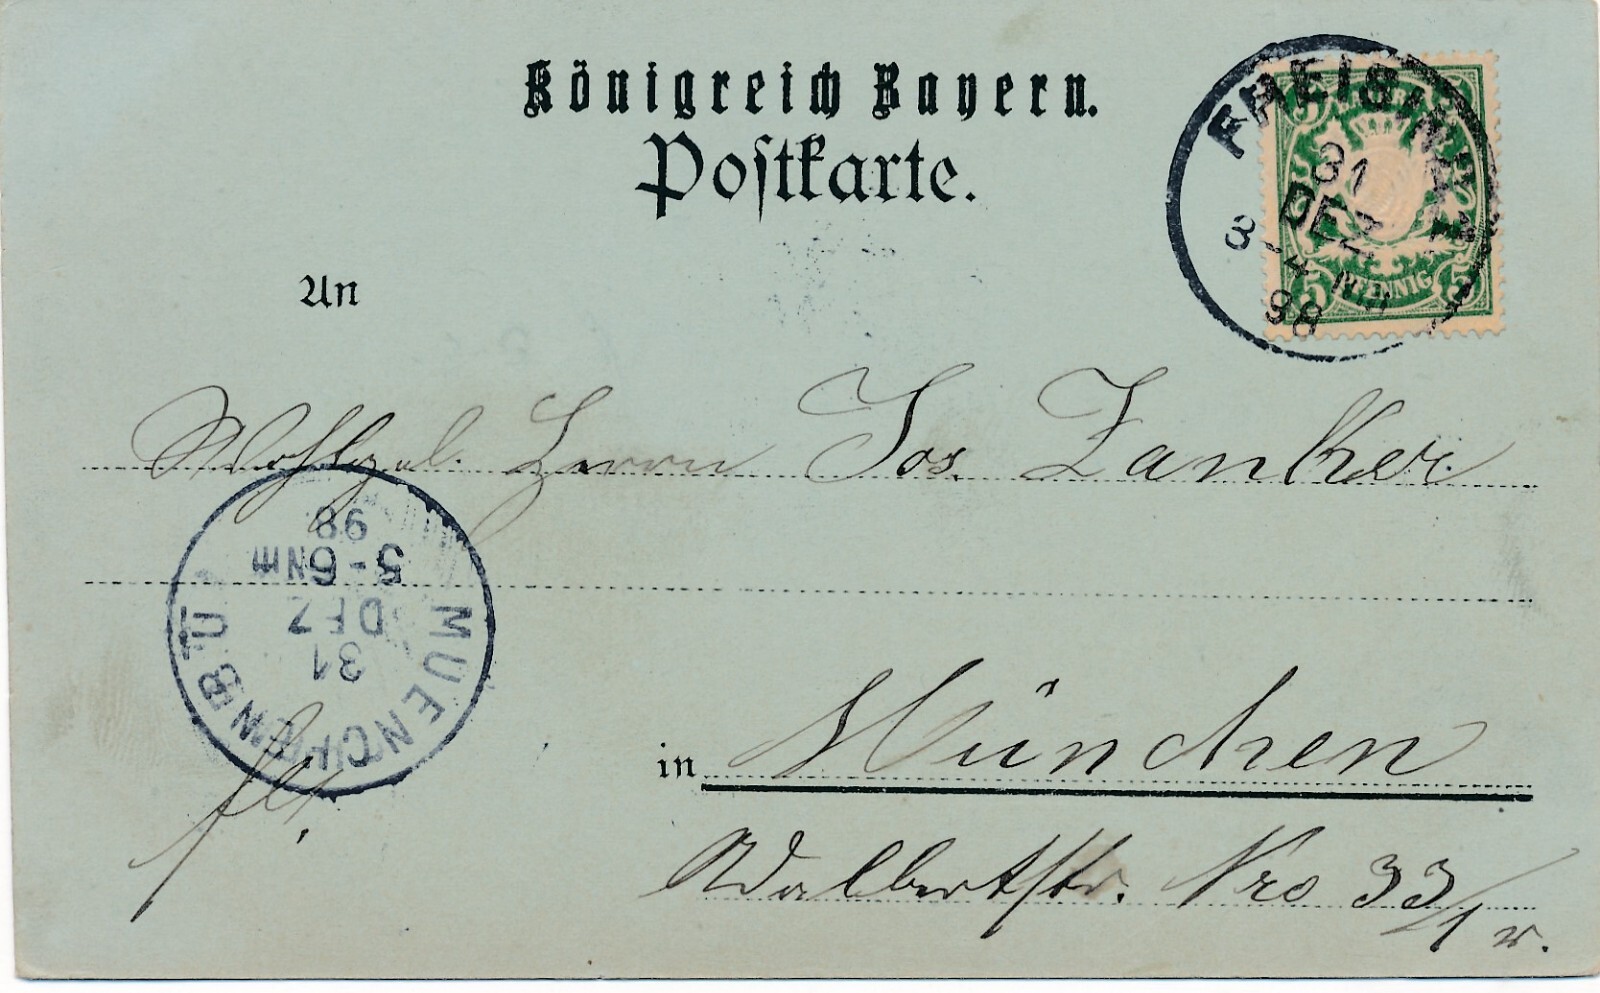 Königreich Bayern.
Postkarte.
FREISING
31
DEZ
3-4 Nm
98
5 5
PFENNIG
An
Wohlgeb. Herrn Jos. Zanker
98
5-6 Nm
DEZ
31
MUENCHEN
in München
Walbertstr. Nro 33/1 r.